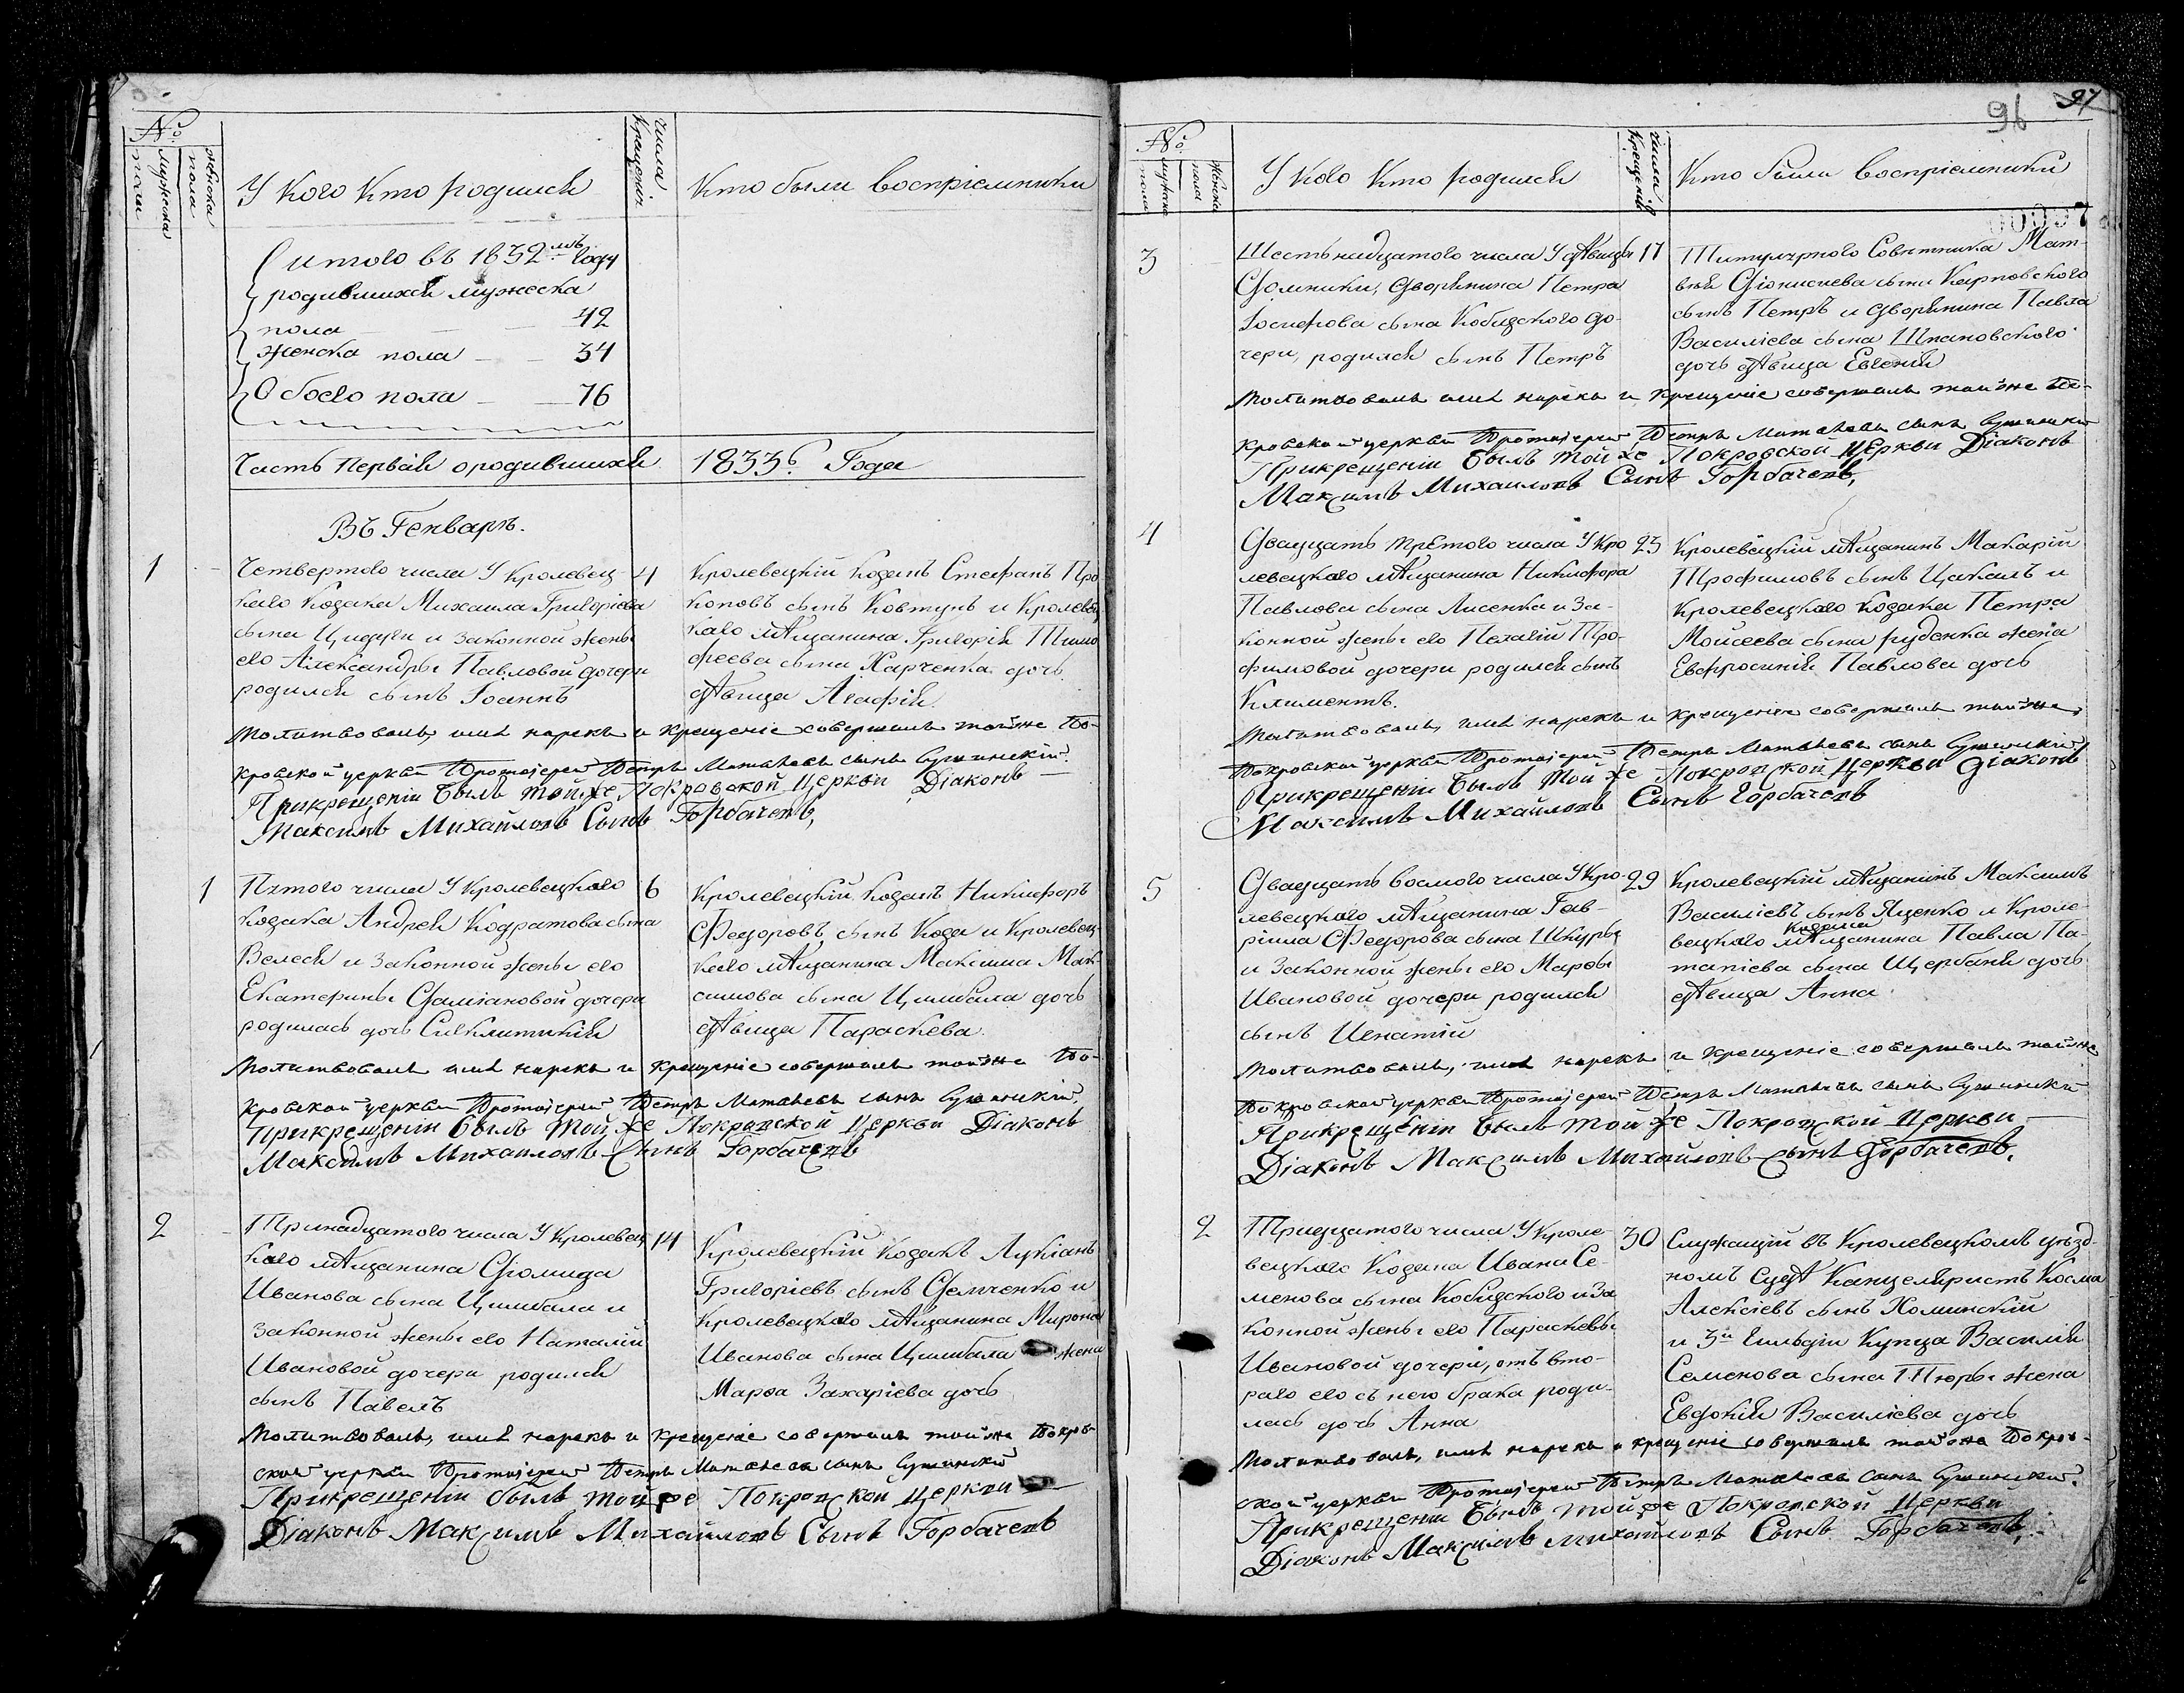 №
мужеска пола
женска пола
У кого кто родился
числа крещенія
Кто были воспріемники
итого въ 1832мъ году
родившихся мужеска
пола — 42
женска пола — 34
Обоего пола — 76
Часть Первая ородившихся 1833го Года
Въ Генваръ.
1
Четвертого числа У Кролевец-
каго козака Михаила Григоріева
сына Цидуги и законной жены
его Александры Павловой дочери
родился сынъ Іоаннъ
4
Кролевецкій козакъ Стефанъ Про
коповъ сынъ Ковтунъ и Кролевец
каго мѣщанина Григорія Тимо
феева сына Харченка дочь
дѣвица Агафія.
Молитвовалъ, имя нарекъ и крещеніе совершалъ тойже По-
кровской церкви Протоіерей Петръ Матвѣевъ сынъ Сушинскій.
Прикрещеніи былъ тойже Покровской Церкви Діаконъ
Максимъ Михайловъ Сынъ Горбачевъ,
1
Пятого числа У Кролевецкаго
козака Андрея Кодратова сына
Велеся и законной жены его
Екатерины Даміановой дочери
родилась дочь Сигклитикія
6
Кролевецкій козакъ Никифоръ
Федоровъ сынъ Коза и Кролевец
каго мѣщанина Максима Мак
симова сына Цимбала дочь
дѣвица Параскева.
Молитвовалъ имя нарекъ и крещеніе совершалъ тойже По-
кровской церкви Протоіерей Петръ Матвѣевъ сынъ Сушинскій.
Прикрещеніи былъ тойже Покровской Церкви Діаконъ
Максимъ Михаиловъ Сынъ Горбачевъ
2
Тринадцатого числа У Кролевец
каго мѣщанина Діомида
Иванова сына Цимбала и
законной жены его Наталіи
Ивановой дочери родился
сынъ Павелъ
14
Кролевецкій козакъ Лукіанъ
Григоріевъ сынъ Демченко и
Кролевецкаго мѣщанина Мирона
Иванова сына Цимбала жена
Марѳа Захаріева дочь
Молитвовалъ, имя нарекъ и крещеніе совершалъ тойже Покров-
ской церкви Протоіерей Петръ Матвѣевъ сынъ Сушинскій
Прикрещеніи былъ тойже Покровской Церкви
Діаконъ Максимъ Михайловъ Сынъ Горбачевъ
96 97
№
мужеска пола
женска пола
У кого кто родился
числа крещенія
Кто были воспріемники
00097
3
Шестьнадцатого числа У дѣвицы
Домники, дворянина Петра
Іосифова сына Кобизского до-
чери, родился сынъ Петръ
17
Титулярного Совѣтника Мат-
вѣя Діонисиева сына Карповского
сынъ Петръ и дворянина Павла
Василіева сына Шпановского
дочь дѣвица Евгенія
Молитвовалъ имя нарекъ и крещеніе совершалъ тойже По-
кровской церкви Протоіерей Петръ Матвѣевъ сынъ Сушинскій
Прикрещеніи былъ тойже Покровской Церкви Діаконъ
Максимъ Михаиловъ Сынъ Горбачевъ,
4
Двадцать третого числа У Кро
левецкого мѣщанина Никифора
Павлова сына Лисенка и За-
конной жены его Пелагіи Тро-
фимовой дочери родился сынъ
Климентъ.
25
Кролевецкій мѣщанинъ Макарій
Трофимовъ сынъ Цакалъ и
Кролевецкаго козака Петра
Моисеева сына руденка жена
Евфросинія Павлова дочь
Молитвовалъ, имя нарекъ и крещеніе совершалъ тойже
Покровской церкви Протоіерей Петръ Матвѣевъ сынъ Сушинскій
Прикрещеніи былъ тойже Покровской Церкви Діаконъ
Максимъ Михайловъ Сынъ Горбачевъ
5
Двадцать восмого числа У Кро-
левецкого мѣщанина Гав-
ріила Федорова сына Шкуры
и законной жены его Марѳы
Ивановой дочери родился
сынъ Игнатій
29
Кролевецкій мѣщанинъ Максимъ
Василіевъ сынъ Яценко и Кроле-
козака
вецкаго мѣщанина Павла По-
тапіева сына Щербаня дочь
дѣвица Анна
Молитвовалъ, имя нарекъ и крещеніе совершалъ тойже
Покровской церкви Протоіерей Петръ Матвѣевъ сынъ Сушинскій
Прикрещеніи былъ тойже Покровской Церкви
Діаконъ Максимъ Михайловъ сынъ Горбачевъ,
2
Тридцатого числа У Кроле-
вецкаго козака Ивана Се-
менова сына Кобизского и За
конной жены его Параскевы
Ивановой дочери, отъ вто-
раго его съ нею брака роди-
лась дочь Анна
30
Служащій въ Кролевецкомъ уѣзд-
номъ Судѣ Канцеляристъ Косма
Алексіевъ сынъ Хоминскій
и 3й гильдіи купца Василія
Семенова сына Тюры жена
Евдокія Василіева дочь
Молитвовалъ, имя нарекъ и крещеніе совершалъ тойже Покров-
ской церкви Протоіерей Петръ Матвѣевъ сынъ Сушинскій.
Прикрещеніи былъ тойже Покровской Церкви
Діаконъ Максимъ Михайловъ Сынъ Горбачевъ,